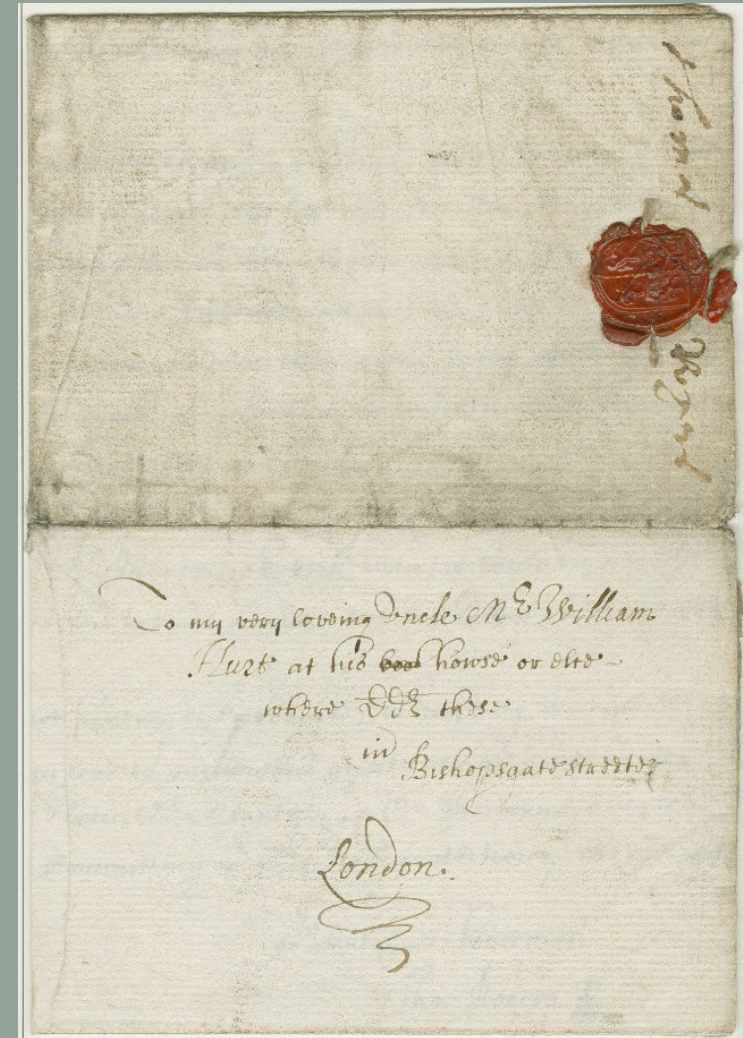 Thomas
To my very loveing Vncle Mr William
Hurt at his howse or else
where ddr these
in Bishopsgate streete
London.